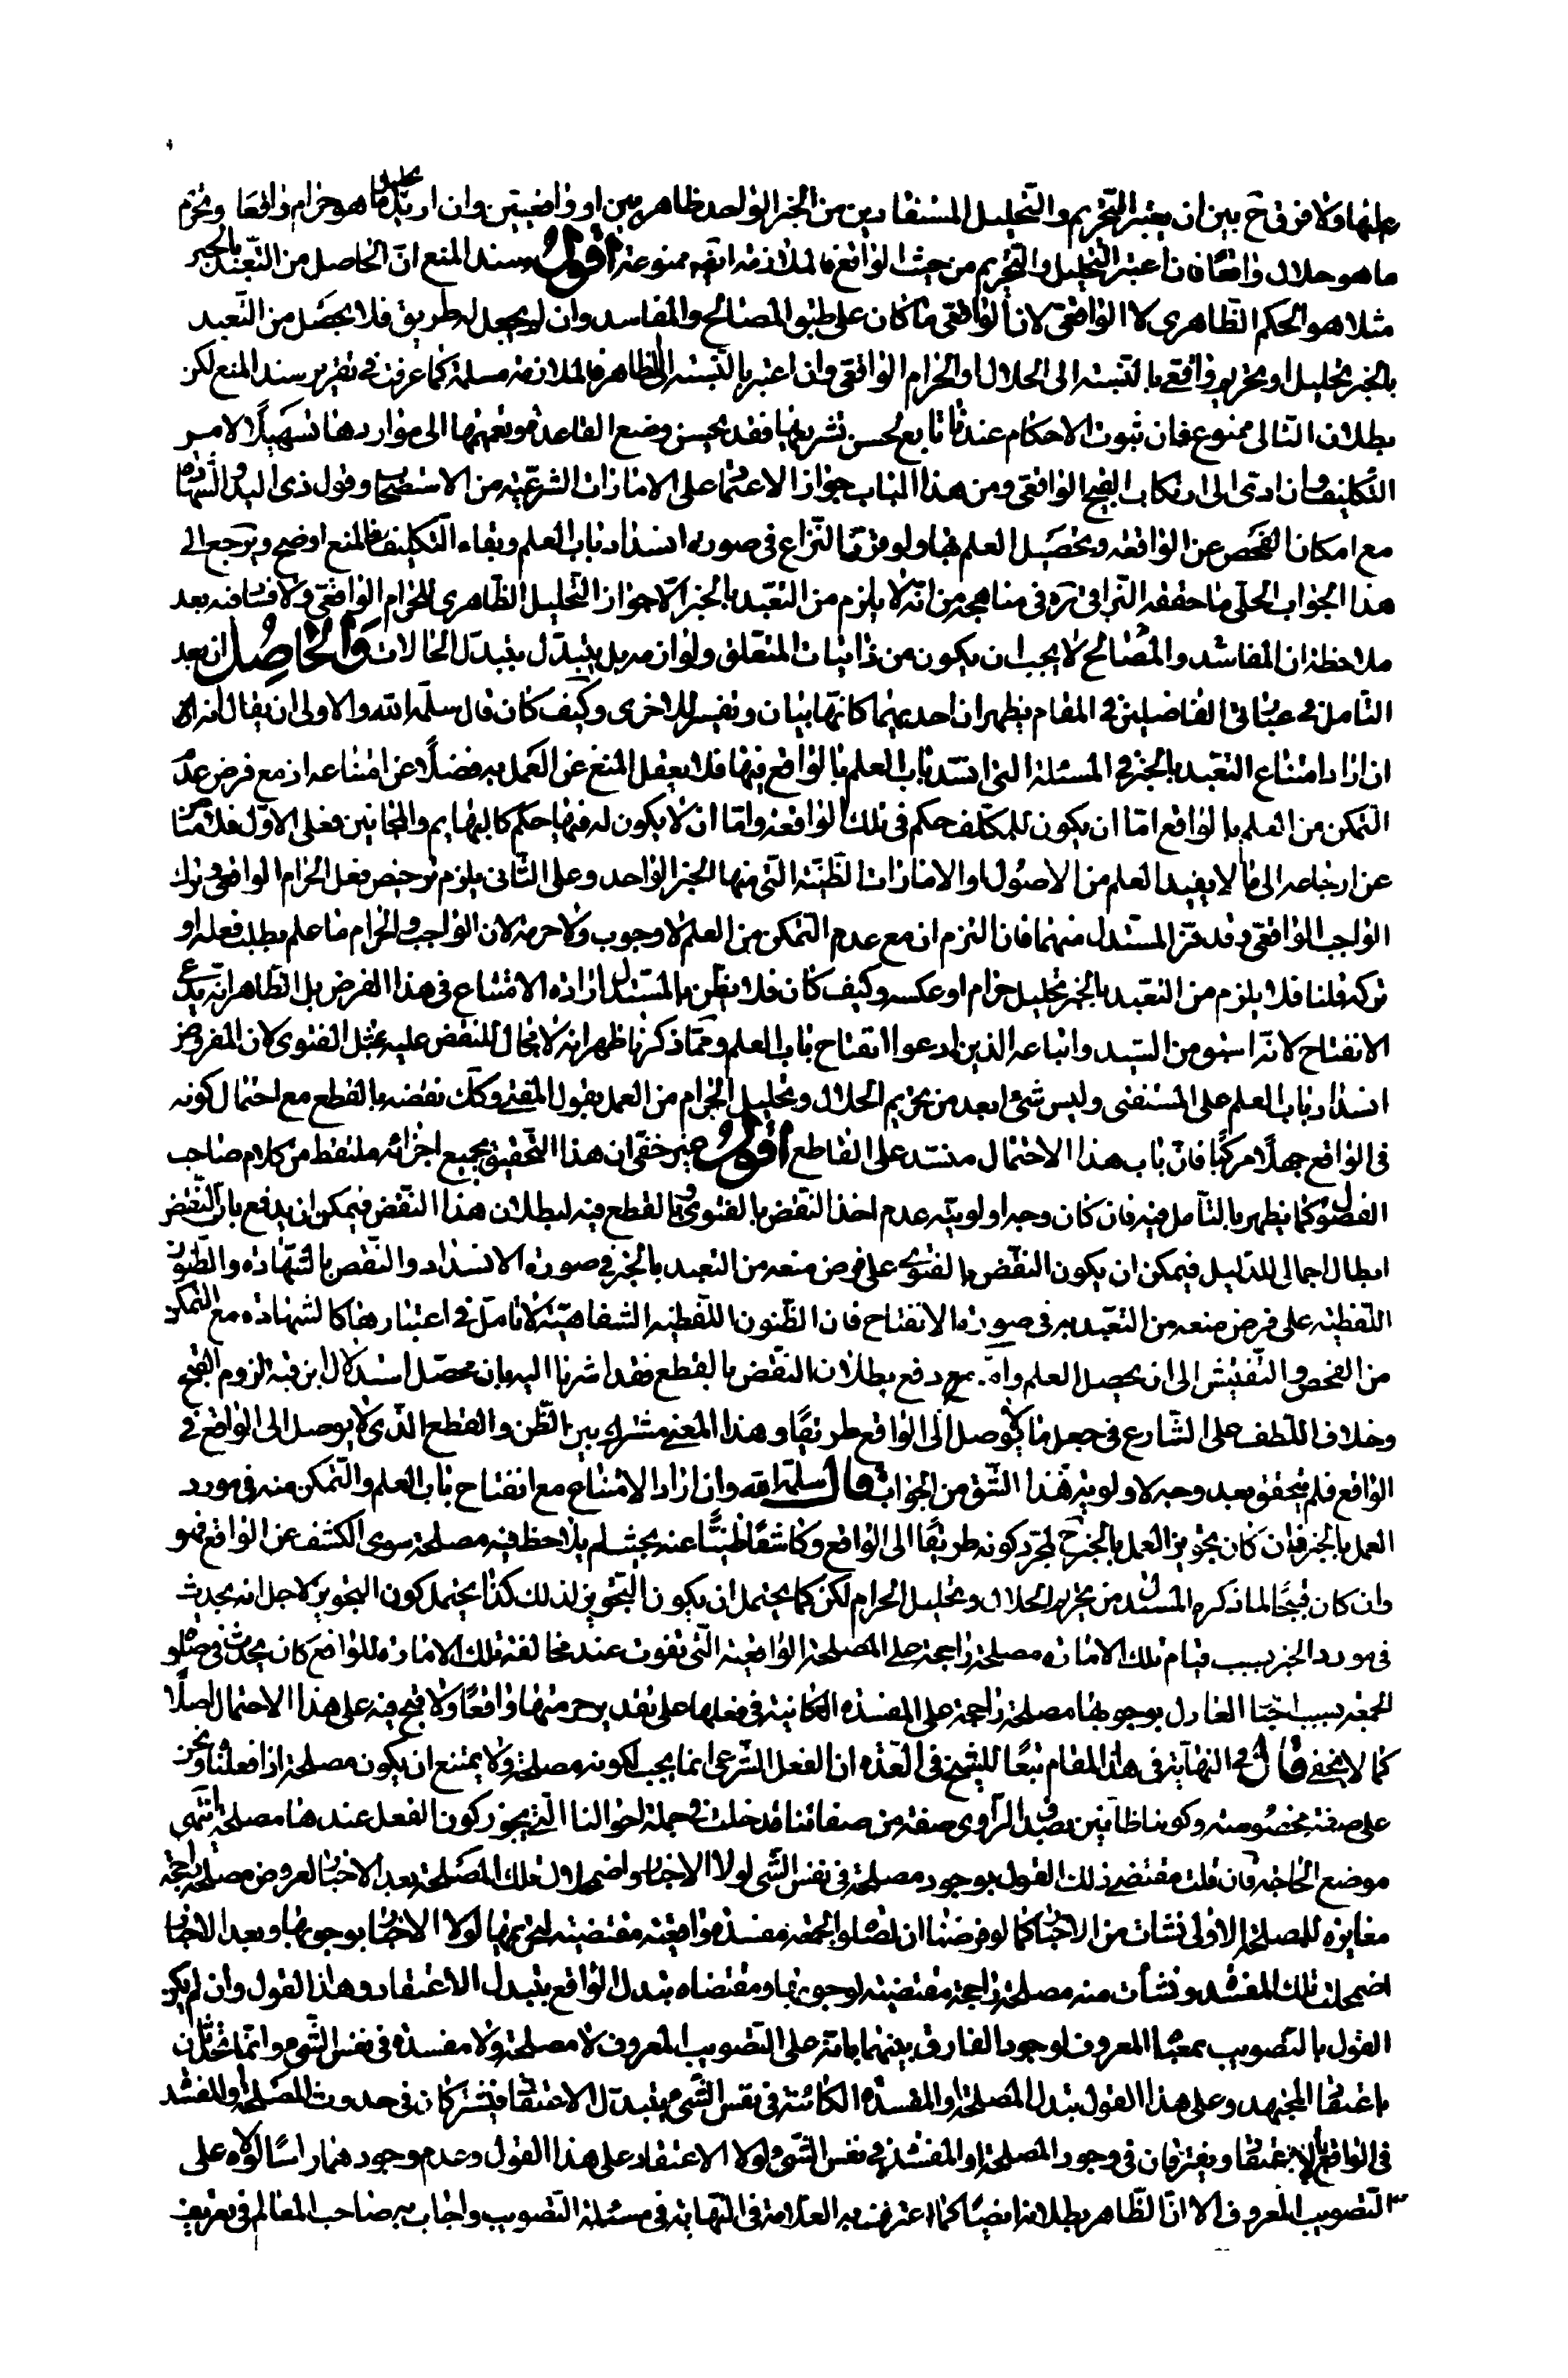 عليها ولا فرق ح بين ان يعتبر التحريم والتحليل المستفادين من الخبر الواحد ظاهريين او واقعيتين وان اريد تحليل ما هو حرام واقعا وتحرم
ما هو حلال واقعا فان اعتبر التحليل والتحريم من حيث الواقع فالملازمة ايضه ممنوعة اقول وسند المنع ان الحاصل من التعبد بالخبر
مثلا هو الحكم الظاهري لا الواقعي لان الواقعي ما كان على طبق المصالح والمفاسد وان لم يجعل له طريق فلا يحصل من التعبد
بالخبر تحليل وتحريم واقعي بالنسبة الى الحلال والحرام الواقعي وان اعتبر بالنسبة الى الظاهر فالملازمة مسلمة كما عرفت في تقرير سند المنع لكن
بطلان التالى ممنوع فان ثبوت الاحكام عندنا تابع لحسن تشريعها فقد يحسن وضع القاعدة وتعميمها الى مواردها تسهيلا لامر
التكليف وان ادى الى ارتكاب القبيح الواقعي ومن هذا الباب جواز الاعتماد على الامارات الشرعية من الاستصحاب وقول ذى اليد والشهادة
مع امكان الفحص عن الواقعة وتحصيل العلم بها ولو فرضنا النزاع فى صورة انسداد باب العلم وبقاء التكليف فالمنع اوضح ويرجع الى
هذا الجواب الحلى ما حققه النراقى ره فى مناهجه من انه لا يلزم من التعبد بالخبر الا جواز التحليل الظاهرى للحرام الواقعي ولا فساد فيه بعد
ملاحظة ان المفاسد والمصالح لا يجب ان يكون من ذاتيات المتعلق ولوازمه بل يتبدل بتبدل الحالات والحاصل ان بعد
التامل فى عبارتى الفاضلين فى المقام يظهر ان احديهما كانها بيان وتفسير للاخرى وكيف كان قال سلمه الله والاولى ان يقال انه
ان اراد امتناع التعبد بالخبر فى المسئلة التى انسد باب العلم بالواقع فيها فلا يعقل المنع عن العمل به فضلا عن امتناعه اذ مع فرض عدم
التمكن من العلم بالواقع اما ان يكون للمكلف حكم فى تلك الواقعة واما ان لا يكون له فيها حكم كالبهايم والمجانين فعلى الاول فلا مناص
عن ارجاعه الى ما لا يفيد العلم من الاصول او الامارات الظنية التى منها الخبر الواحد وعلى الثانى يلزم ترخيص فعل الحرام الواقعى وترك
الواجب الواقعى وقد فر المستدل منهما فان التزم ان مع عدم التمكن من العلم لا وجوب ولا حرمة لان الواجب والحرام ما علم بطلب فعله او
تركه قلنا فلا يلزم من التعبد بالخبر تحليل حرام او عكسه وكيف كان فلا يظن بالمستدل ارادة الامتناع فى هذا الفرض بل الظاهر انه يدعى
الانفتاح لانه اسبق من السيد واتباعه الذين ادعوا انفتاح باب العلم ومما ذكرنا ظهر انه لا مجال للنقض عليه بمثل الفتوى لان المفروض
انسداد باب العلم على المستفتى وليس شئ ابعد من تحريم الحلال وتحليل الحرام من العمل بقول المفتى وكك نقضه بالقطع مع احتمال كونه
فى الواقع جهلا مركبا فان باب هذا الاحتمال منسد على القاطع اقول غير خفى ان هذا التحقيق بجميع اجزائه ملتقط من كلام صاحب
الفصول كما يظهر بالتامل فيه فان كان وجه اولويته عدم اخذ النقض بالفتوى وبالقطع فيه لبطلان هذا النقض فيمكن ان يدفع بان النقض
ابطال اجمالى للدليل فيمكن ان يكون النقض بالفتوى على فرض منعه من التعبد بالخبر فى صورة الانسداد والنقض بالشهادة والظنون
اللفظية على فرض منعه من التعبد به فى صورة الانفتاح فان الظنون اللفظية الشفاهية لا تامل فى اعتبارها كالشهادة مع التمكن
من الفحص والتفتيش الى ان يحصل العلم واما دفع بطلان النقض بالقطع فقد اشرنا اليه بان محصل استدلال ابن قبة لزوم القبح
وخلاف اللطف على الشارع فى جعل ما لا يوصل الى الواقع طريقا وهذا المعنى مشترك بين الظن والقطع الذى لا يوصل الى الواقع فى
الواقع فلم يتحقق بعد وجه لاولوية هذا الشق من الجواب قال سلمه الله وان اراد الامتناع مع انفتاح باب العلم والتمكن منه فى مورد
العمل بالخبر فان كان تجويز العمل بالخبر ح لمجرد كونه طريقا الى الواقع وكاشفا ظنيا عنه بحيث لم يلاحظ فيه مصلحة سوى الكشف عن الواقع فهو
وان كان قبيحا لما ذكره المستدل من تحريم الحلال وتحليل الحرام لكن كما يحتمل ان يكون التجويز لذلك كذا يحتمل كون التجويز لاجل انه يحدث
فى مورد الخبر بسبب قيام تلك الامارة مصلحة راجحة على المصلحة الواقعية التى تفوت عند مخالفة تلك الامارة للواقع كان يحدث فى صلوة
الجمعة بسبب اخبار العادل بوجوبها مصلحة راجحة على المفسدة الكائنة فى فعلها على تقدير حرمتها واقعا ولا قبح فيه على هذا الاحتمال اصلا
كما لا يخفى قال فى النهاية فى هذا المقام تبعا للشيخ فى العدة ان الفعل الشرعى انما يجب لكونه مصلحة ولا يمتنع ان يكون مصلحة اذا فعلناه ونحن
على صفة مخصوصة وكوننا ظانين بصدق الراوى صفة من صفاتنا فدخلت فى جملة احوالنا التى يجوز كون الفعل عندها مصلحة انتهى
موضع الحاجة فان قلت مقتضى ذلك القول بوجود مصلحة فى نفس الشئ لولا الاخبار واضمحلال تلك المصلحة بعد الاخبار لعروض مصلحة راجحة
مغايرة للمصلحة الاولى نشات من الاخبار كما لو فرضنا ان لصلوة الجمعة مفسدة واقعية مقتضية لتحريمها لولا الاخبار بوجوبها وبعد الاخبار
اضمحلت تلك المفسدة ونشأت منه مصلحة راجحة مقتضية لوجوبها ومقتضاه تبدل الواقع بتبدل الاعتقاد وهذا القول وان لم يكن
القول بالتصويب بمعناه المعروف لوجود الفارق بينهما بانه على التصويب المعروف لا مصلحة ولا مفسدة فى نفس الشئ وانما تحدثان
باعتقاد المجتهد وعلى هذا القول تبدل المصلحة او المفسدة الكائنة فى نفس الشئ بتبدل الاعتقاد فيشتركان فى حدوث المصلحة والمفسدة
فى الواقع بالاعتقاد ويفترقان فى وجود المصلحة او المفسدة فى نفس الشئ لولا الاعتقاد على هذا القول وعدم وجودهما راسا لولاه على
التصويب المعروف الا ان الظاهر بطلانه ايضا كما اعترف به العلامة فى النهاية فى مسئلة التصويب واجاب به صاحب المعالم فى تعريف